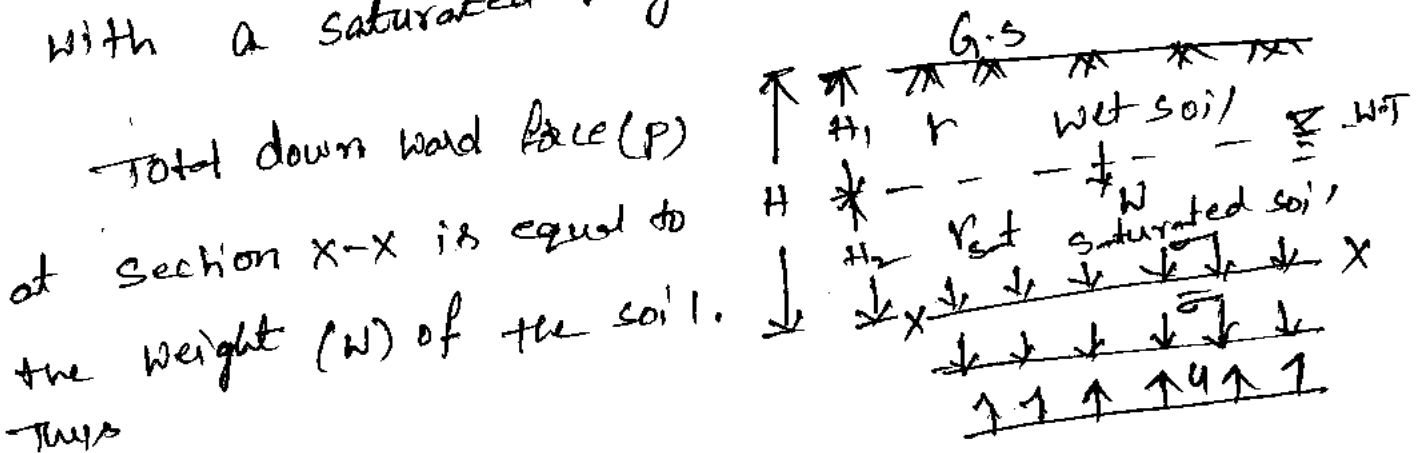 with a saturated
Total down ward force (P)
at section X-X is equal to
the weight (W) of the soil.
Thus
G.S
H1 γ wet soil W.T
H W
H2 γsat saturated soil
X X
σ̄
σ̄
u